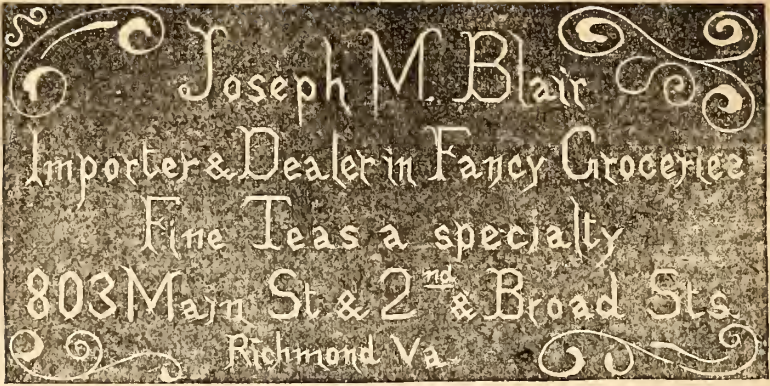 Joseph M. Blair
Importer & Dealer in Fancy Groceries
Fine Teas a specialty
803 Main St & 2nd & Broad Sts.
Richmond Va.